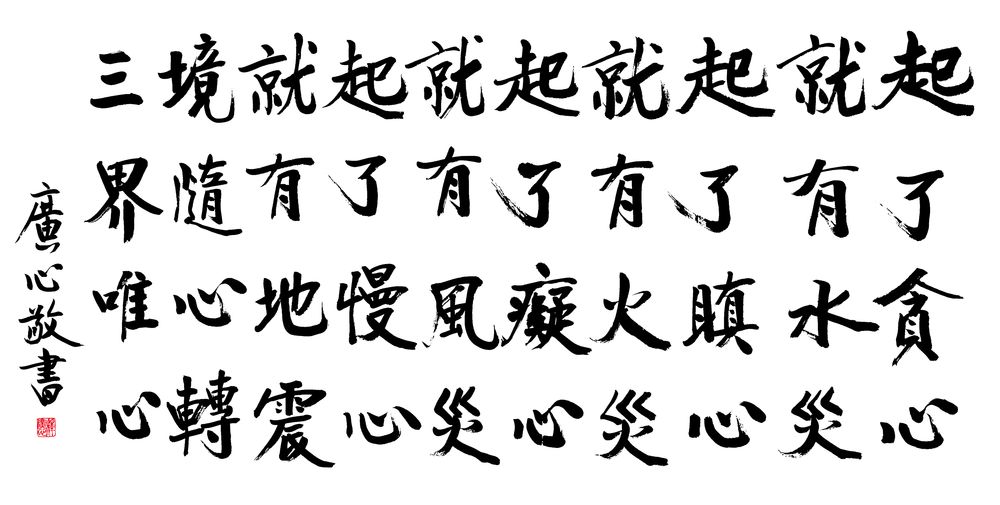 起了貪心
就有水災
起了瞋心
就有火災
起了癡心
就有風災
起了慢心
就有地震
境隨心轉
三界唯心
廣心敬書